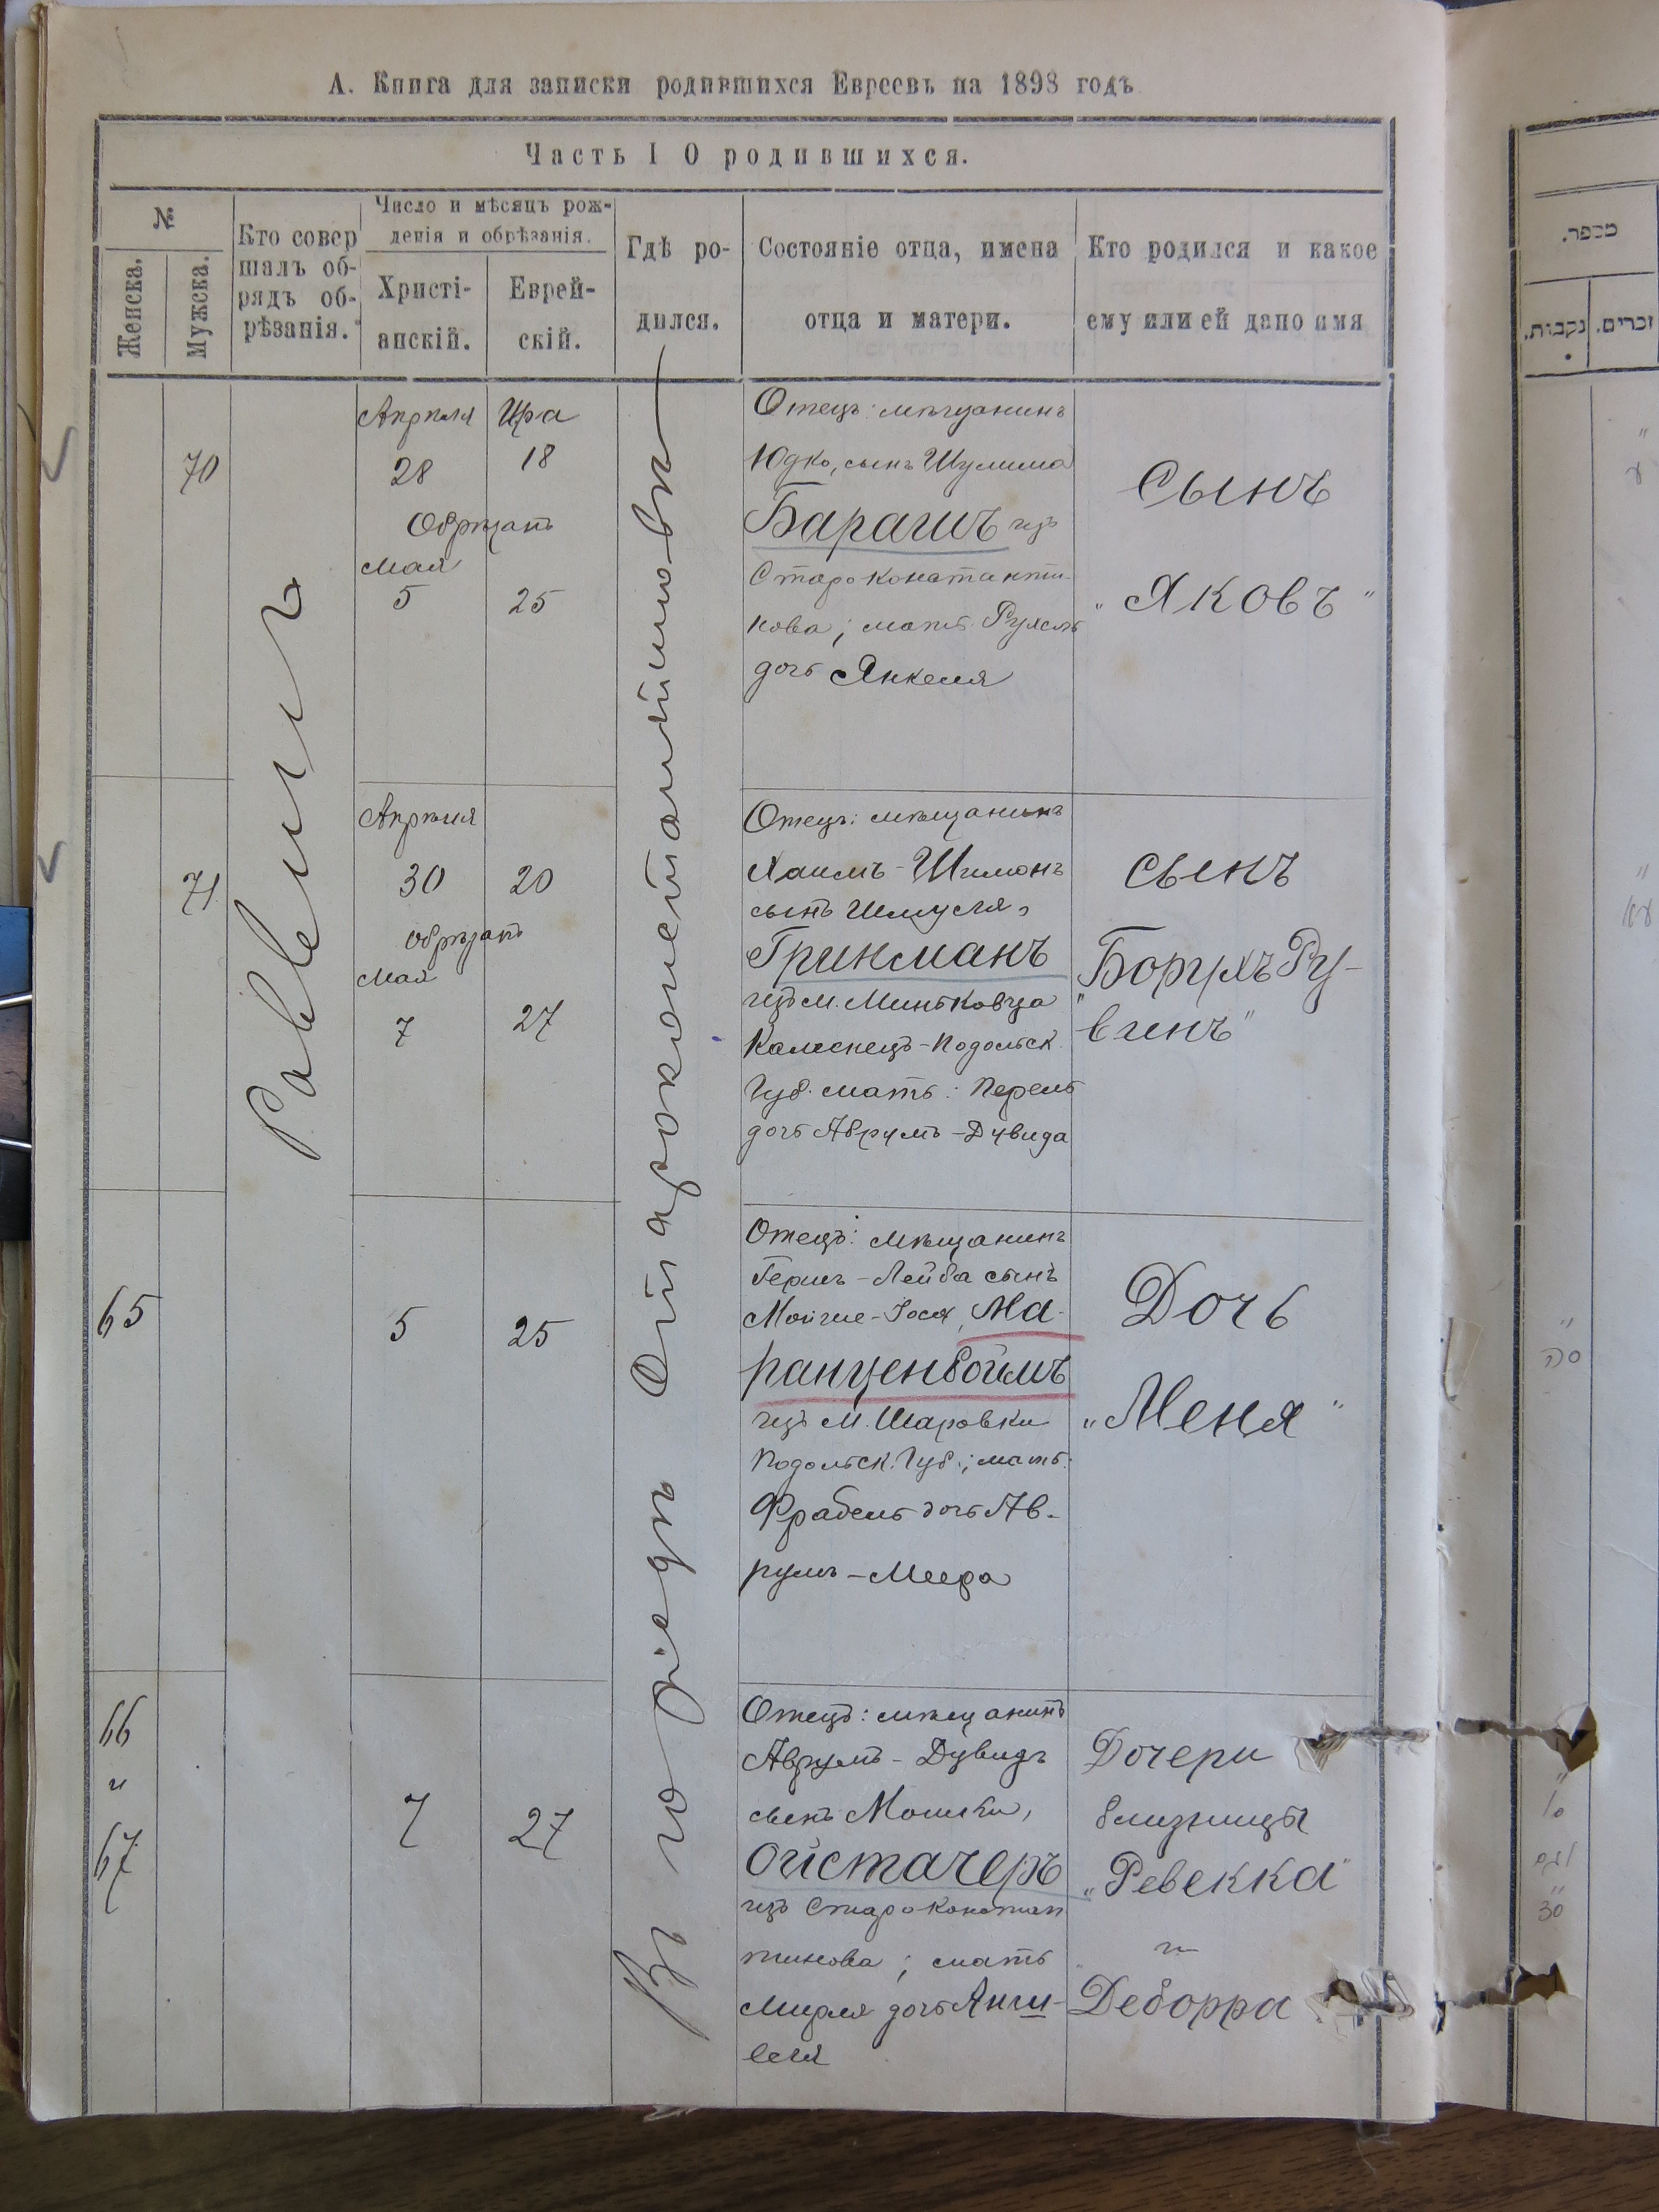 А. Книга для записки родившихся Евреевъ на 1898 годъ
Часть I О родившихся.
№
Женска.
Мужска.
Кто совер
шалъ об-
рядъ об-
рѣзанія.
Число и мѣсяцъ рож-
денія и обрѣзанія.
Христі-
анскій.
Еврей-
скій.
Гдѣ ро-
дился.
Состояніе отца, имена
отца и матери.
Кто родился и какое
ему или ей дано имя
Раввинъ
Въ городѣ Староконстантиновѣ
70
Апрѣля Ира
28 18
Обрѣзанъ
Мая
5 25
Отецъ: мѣщанинъ
Юдко, сынъ Шулима
Барашъ изъ
Староконстанти-
нова; мать Рухль
дочь Янкеля
Сынъ
"Яковъ"
71
Апрѣля
30 20
Обрѣзанъ
Мая
7 27
Отецъ: мѣщанинъ
Хаимъ-Шимонъ
сынъ Шмуля,
Гринманъ
изъ м. Миньковца
Каменецъ-Подольск.
Губ. мать: Перель
дочь Аврумъ-Дувида
Сынъ
"Борухъ Ру-
винъ"
65
5 25
Отецъ: мѣщанинъ
Гершъ-Лейба сынъ
Мойше-Іося, Ма-
ранценбоймъ
изъ М. Шаровки
Подольск. Губ.; мать:
Фрадель дочь Ав-
румъ-Меера
Дочь
"Меня"
66
и
67
7 27
Отецъ: мѣщанинъ
Аврумъ-Дувидъ
сынъ Мошки,
Ойстачеръ
изъ Староконстан
тинова; мать
Мирля дочь Анши-
леля
Дочери
близницы
"Ревекка"
и
Деборра
מספר.
נקבות.
זכרים.
ע
עא
סה
סו
סז